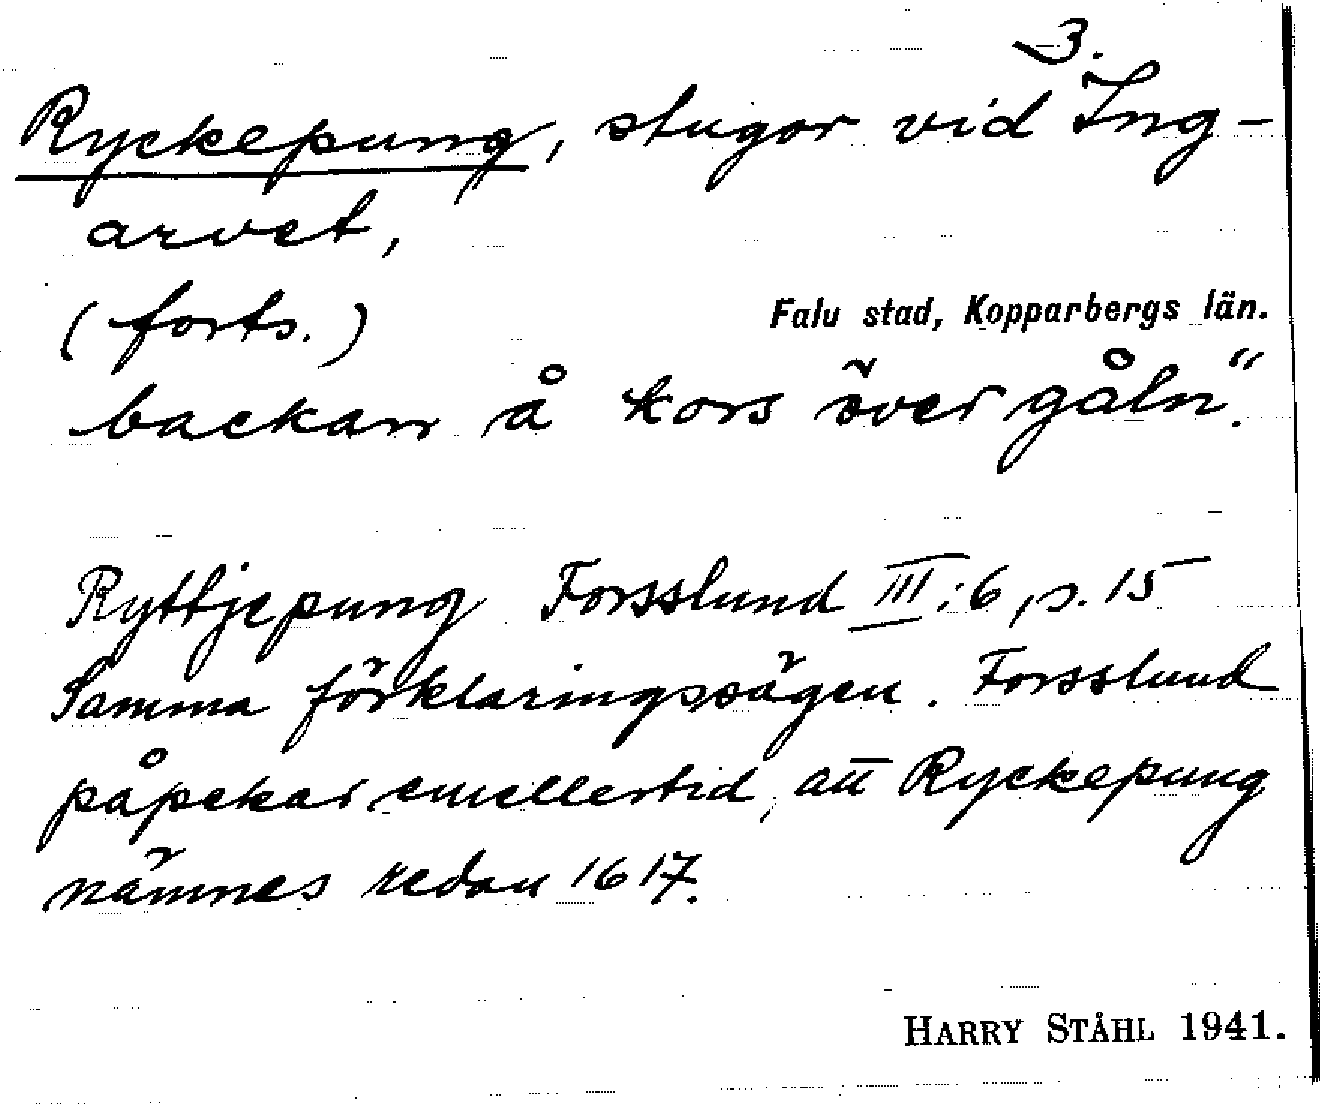 3.
Ryckepung, stugor vid Ing-
arvet,
(forts.)
Falu stad, Kopparbergs län.
backan å kors över gåln".
Ryttjepung Forsslund III:6, s. 15
Samma förklaringssägen. Forsslund
påpekar emellertid, att Ryckepung
nämnes redan 1617.
HARRY STÅHL 1941.